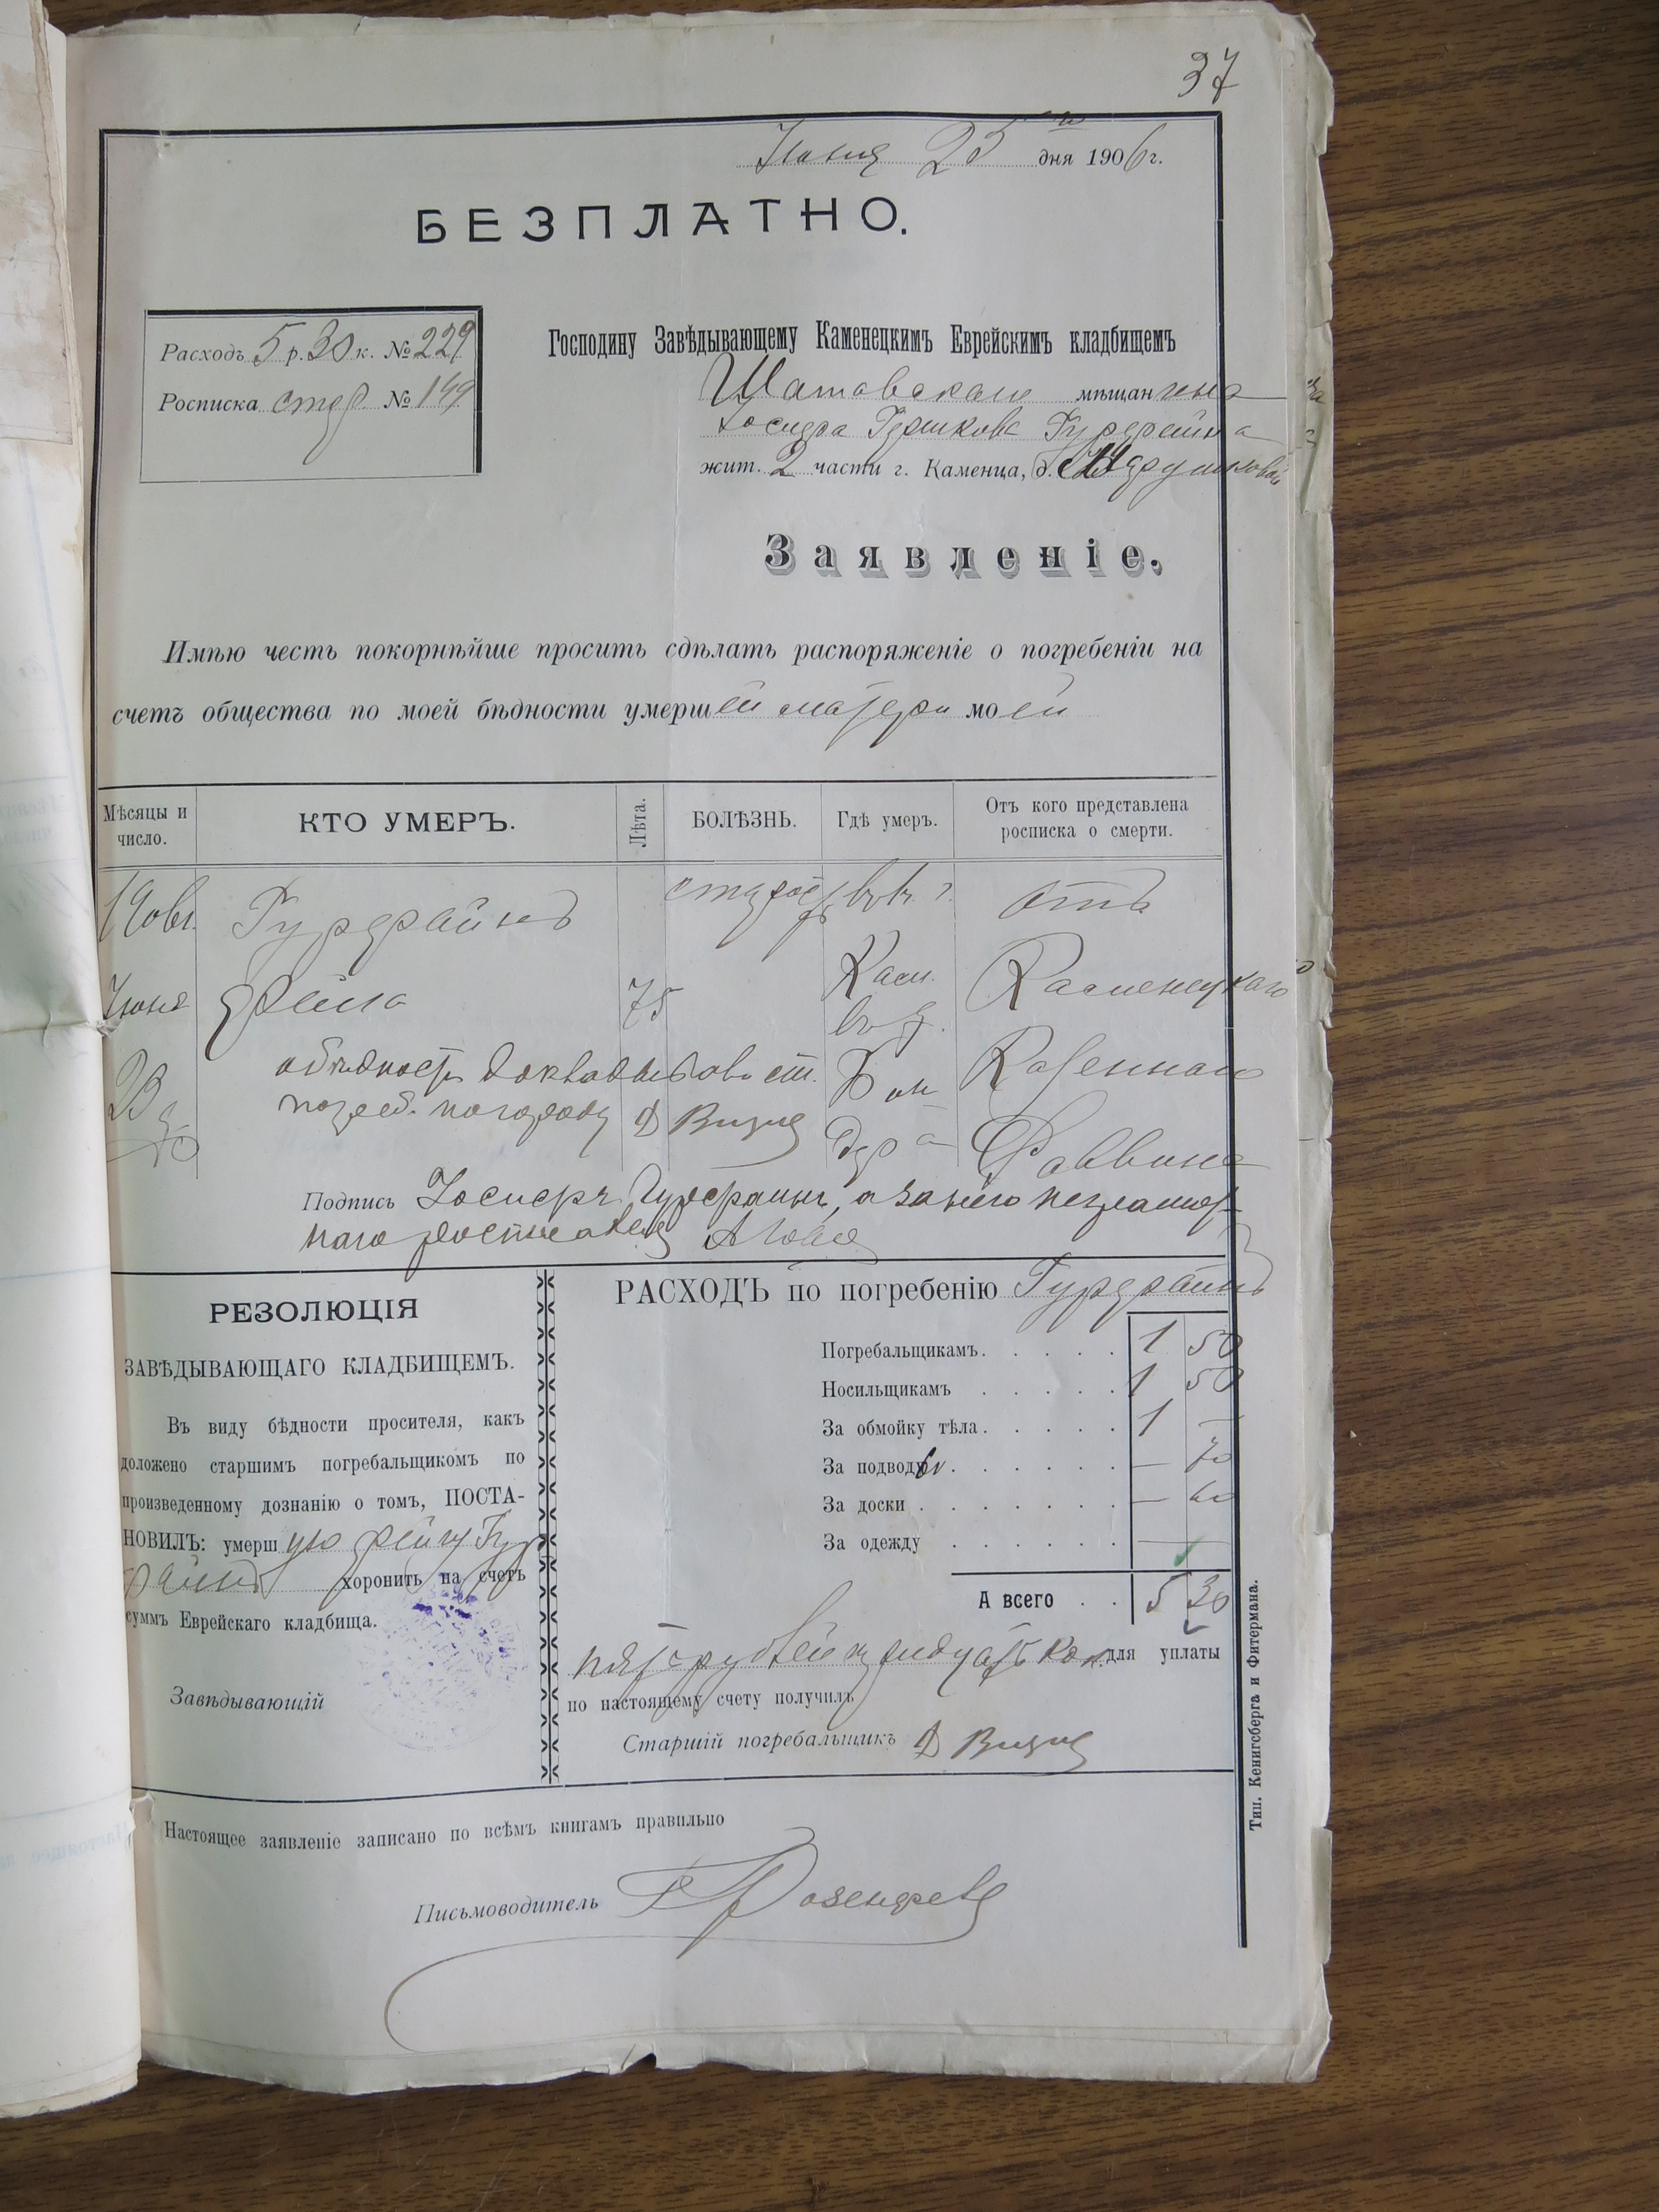 37
Июня 25 дня 1906 г.
БЕЗПЛАТНО.
Расходъ 5 р. 30 к. № 229
Росписка № 149
Господину Завѣдывающему Каменецкимъ Еврейскимъ кладбищемъ
Шатавскаго мѣщанина
Іосифа Гершкова
жит. 2 части г. Каменца, д.
Заявленіе.
Имѣю честь покорнѣйше просить сдѣлать распоряженіе о погребеніи на
счетъ общества по моей бѣдности умершей матери моей
Мѣсяцы и число.
КТО УМЕРЪ.
Лѣта.
БОЛѢЗНЬ.
Гдѣ умеръ.
Отъ кого представлена росписка о смерти.
1906 г.
Июня
Фейга
75
въ г.
Кам.
въ д.
отъ
Каменецкаго
Казеннаго
Раввина
о бѣдности докладывалъ ст.
погреб. по городу Д Визие
Подпись а за него неграмот-
наго
РЕЗОЛЮЦІЯ
ЗАВѢДЫВАЮЩАГО КЛАДБИЩЕМЪ.
Въ виду бѣдности просителя, какъ
доложено старшимъ погребальщикомъ по
произведенному дознанію о томъ, ПОСТА-
НОВИЛЪ: умершую Фейгу
хоронить на счетъ
суммъ Еврейскаго кладбища.
Завѣдывающій
РАСХОДЪ по погребенію
Погребальщикамъ. 1 50
Носильщикамъ 1 50
За обмойку тѣла. 1 —
За подводы — 70
За доски — 60
За одежду —
А всего 5 30
пять рублей тридцать коп. для уплаты
по настоящему счету получилъ
Старшій погребальщикъ Д Визие
Настоящее заявленіе записано по всѣмъ книгамъ правильно
Письмоводитель Розенфельд
Тип. Кенигсберга и Фитермана.